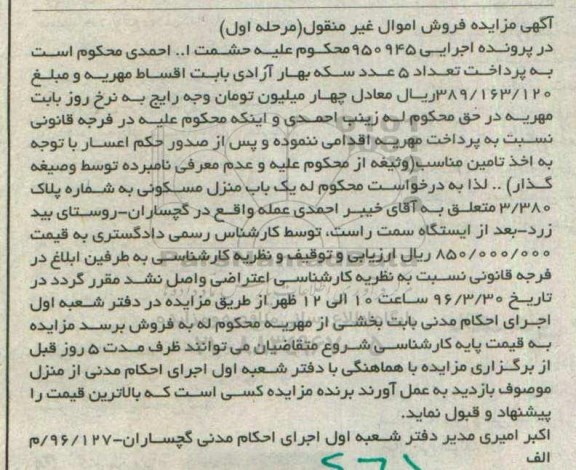 آگهی مزایده فروش اموال غیر منقول(مرحله اول)
در پرونده اجرایی ۹۵۰۹۴۵محکوم علیه حشمت ا.. احمدی محکوم است
به پرداخت تعداد ۵ عدد سکه بهار آزادی بابت اقساط مهریه و مبلغ
۳۸۹/۱۶۳/۱۲۰ریال معادل چهار میلیون تومان وجه رایج به نرخ روز بابت
مهریه در حق محکوم له زینب احمدی و اینکه محکوم علیه در فرجه قانونی
نسبت به پرداخت مهریه اقدامی ننموده و پس از صدور حکم اعسار با توجه
به اخذ تامین مناسب(وثیقه از محکوم علیه و عدم معرفی نامبرده توسط وصیغه
گذار) .. لذا به درخواست محکوم له یک باب منزل مسکونی به شماره پلاک
۳/۳۸۰ متعلق به آقای خیبر احمدی عمله واقع در گچساران-روستای بید
زرد-بعد از ایستگاه سمت راست، توسط کارشناس رسمی دادگستری به قیمت
۸۵۰/۰۰۰/۰۰۰ ریال ارزیابی و توقیف و نظریه کارشناسی به طرفین ابلاغ در
فرجه قانونی نسبت به نظریه کارشناسی اعتراضی واصل نشد مقرر گردد در
تاریخ ۹۶/۳/۳۰ ساعت ۱۰ الی ۱۲ ظهر از طریق مزایده در دفتر شعبه اول
اجرای احکام مدنی بابت بخشی از مهریه محکوم له به فروش برسد مزایده
به قیمت پایه کارشناسی شروع متقاضیان می توانند ظرف مدت ۵ روز قبل
از برگزاری مزایده با هماهنگی با دفتر شعبه اول اجرای احکام مدنی از منزل
موصوف بازدید به عمل آورند برنده مزایده کسی است که بالاترین قیمت را
پیشنهاد و قبول نماید.
اکبر امیری مدیر دفتر شعبه اول اجرای احکام مدنی گچساران-۹۶/۱۲۷/م
الف